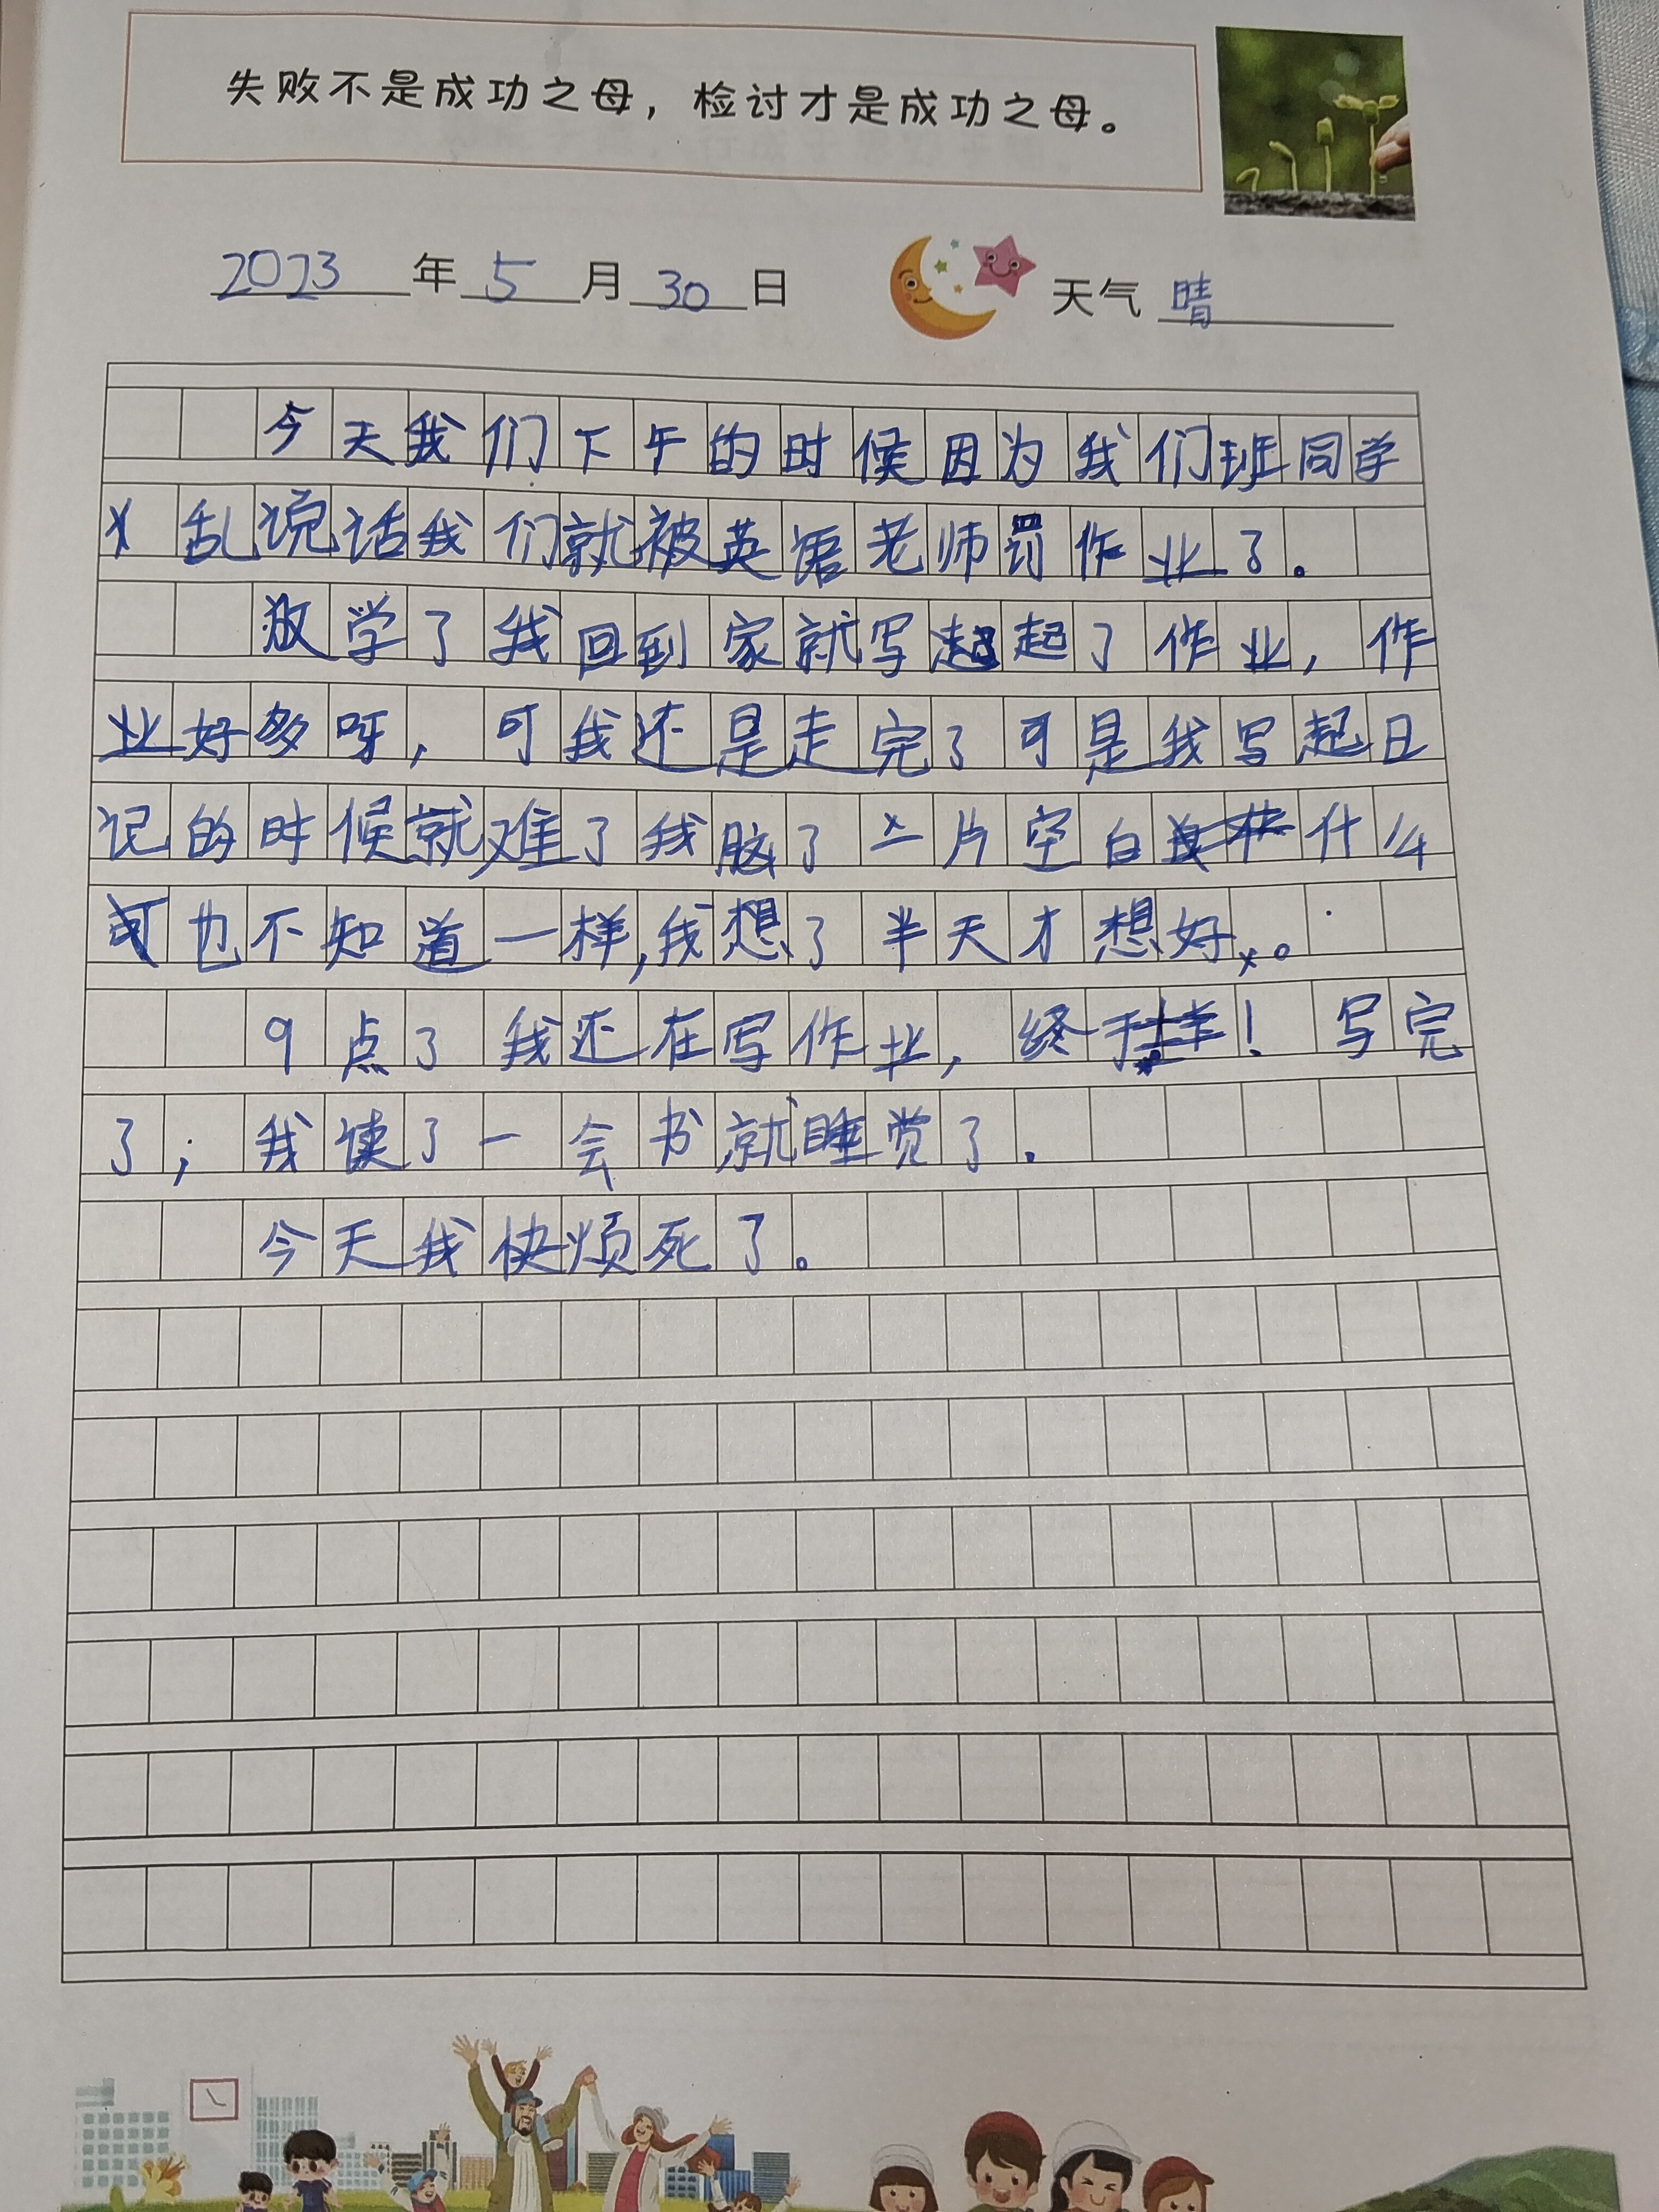 失败不是成功之母，检讨才是成功之母。
2023年5月30日 天气 晴
今天我们下午的时候因为我们班同学
乱说话我们就被英语老师罚作业了。
放学了我回到家就写起了作业，作
业好多呀，可我还是走完了可是我写起日
记的时候就难了我脑了一片空白什么
也不知道一样,我想了半天才想好。
9点了我还在写作业，终于！写完
了；我读了一会书就睡觉了.
今天我快烦死了。